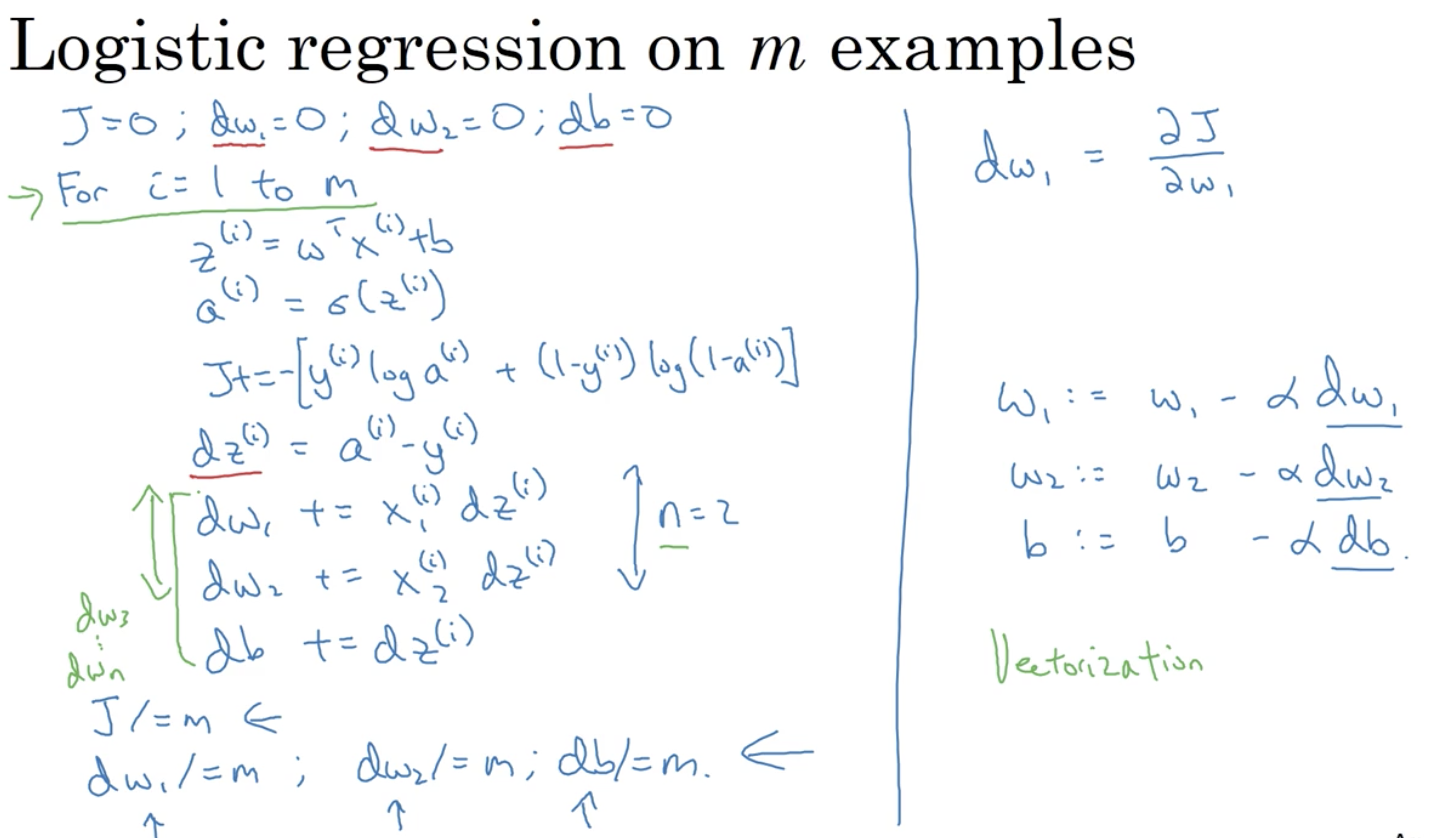 Logistic regression on m examples
J=0; dw₁=0; dw₂=0; db=0
→ For i=1 to m
z⁽ⁱ⁾ = ωᵀx⁽ⁱ⁾+b
a⁽ⁱ⁾ = σ(z⁽ⁱ⁾)
J+=-[y⁽ⁱ⁾ log a⁽ⁱ⁾ + (1-y⁽ⁱ⁾) log(1-a⁽ⁱ⁾)]
dz⁽ⁱ⁾ = a⁽ⁱ⁾-y⁽ⁱ⁾
dw₁ += x₁⁽ⁱ⁾ dz⁽ⁱ⁾
dw₂ += x₂⁽ⁱ⁾ dz⁽ⁱ⁾
n=2
db += dz⁽ⁱ⁾
dw₃
⋮
dwₙ
J/=m ←
dw₁/=m; dw₂/=m; db/=m. ←
↑ ↑ ↑
dw₁ = ∂J/∂w₁
w₁ := w₁ - α dw₁
w₂ := w₂ - α dw₂
b := b - α db.
Vectorization